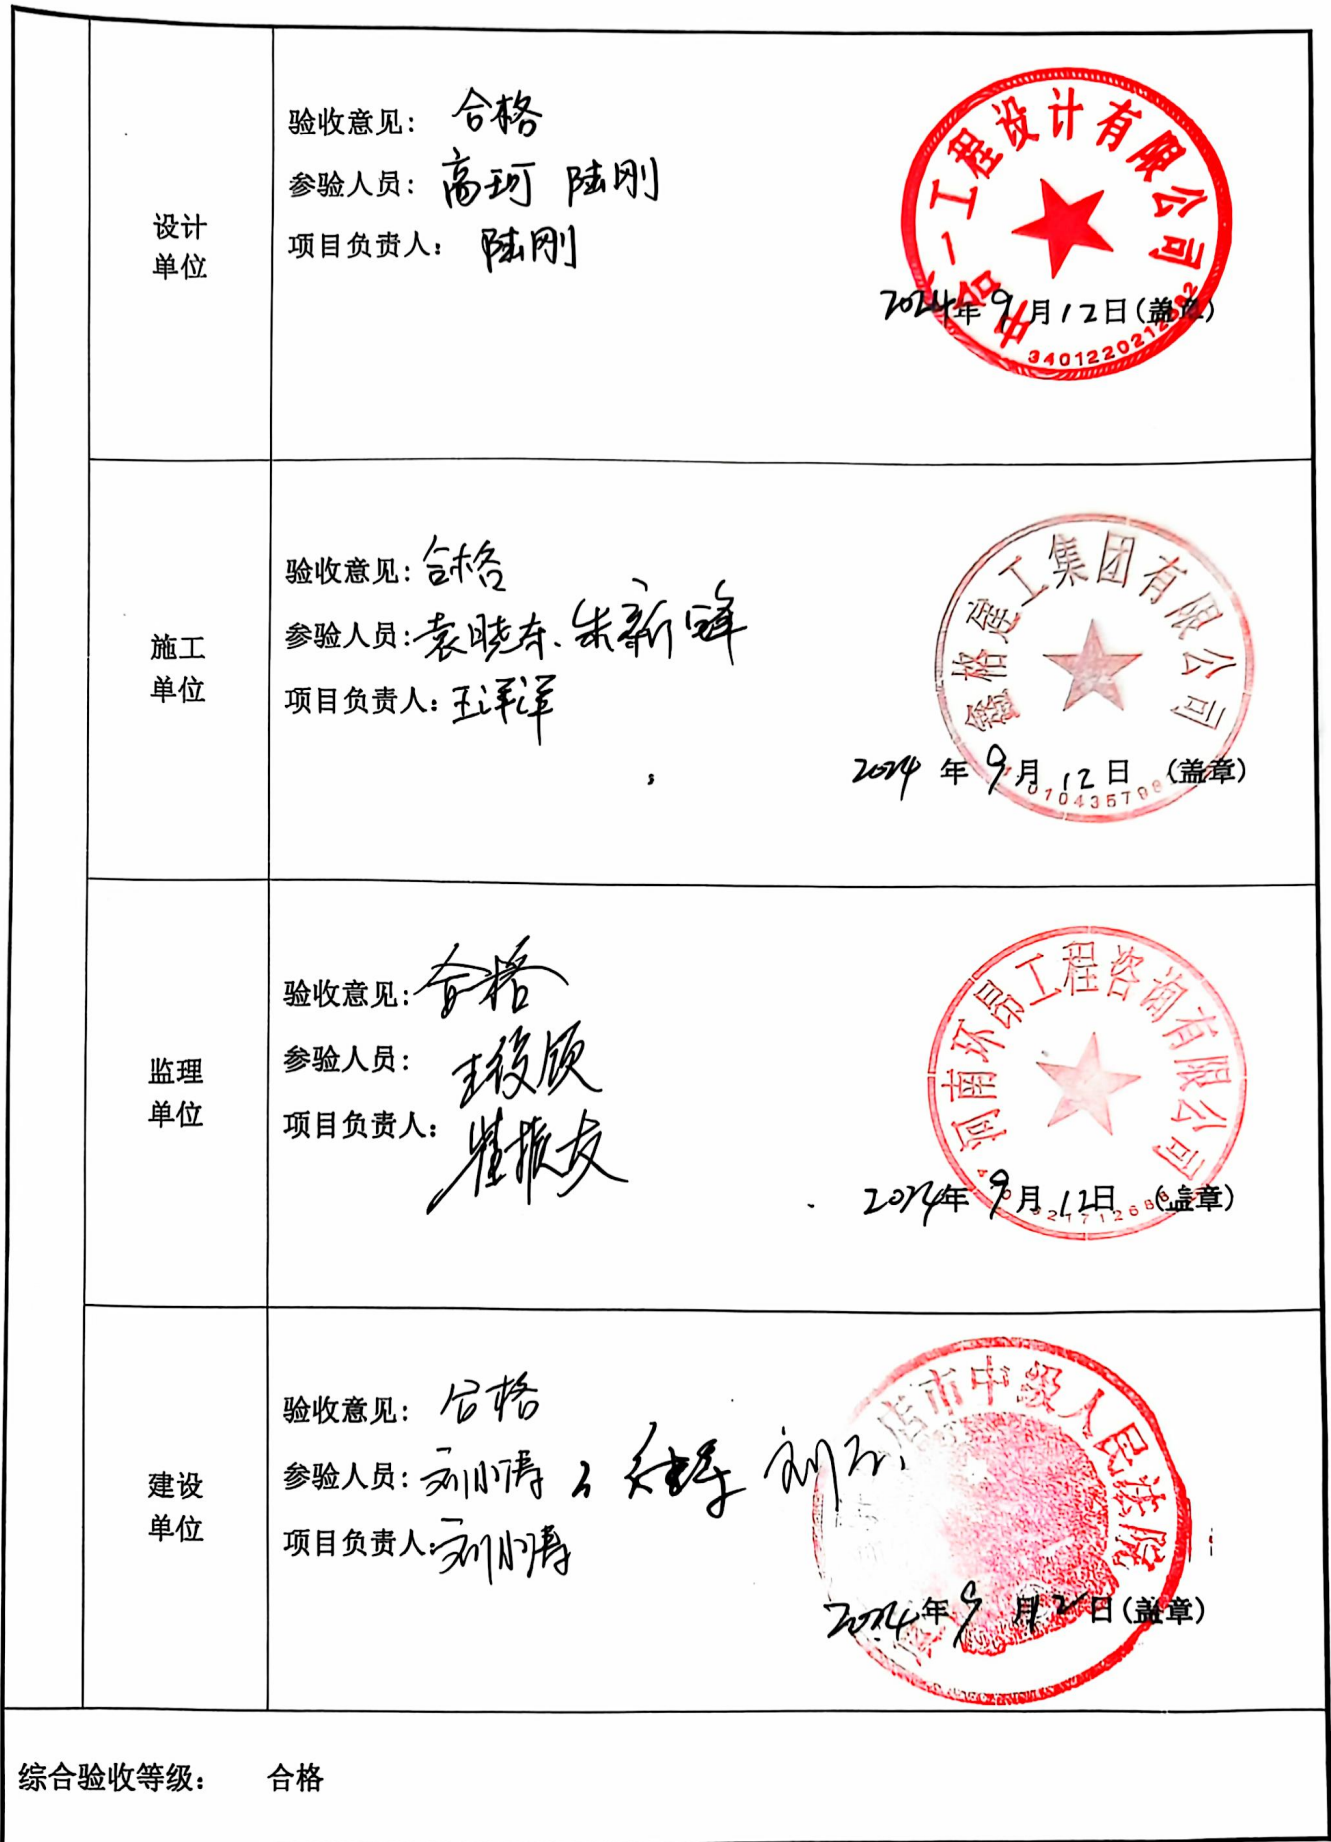 设计
单位
验收意见： 合格
参验人员： 高珂 陆刚
项目负责人： 陆刚
中合一工程设计有限公司
2024年9月12日(盖章)
施工
单位
验收意见：合格
参验人员：袁晓东、朱新锋
项目负责人：王洋洋
鑫格建工集团有限公司
2024年9月12日 （盖章）
监理
单位
验收意见：合格
参验人员：
项目负责人：崔振友
河南环昂工程咨询有限公司
2024年9月12日 （盖章）
建设
单位
验收意见： 合格
参验人员：刘小涛
项目负责人：刘小涛
店市中级人民法院
2024年9月12日(盖章)
综合验收等级： 合格